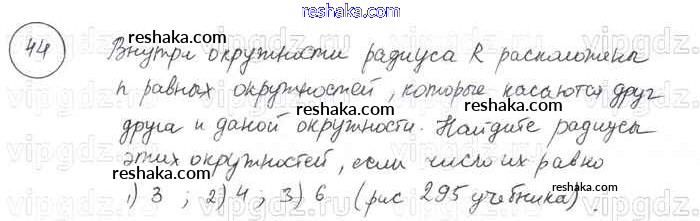 reshaka.com
44
Внутри окружности радиуса R расположены
n равных окружностей, которые касаются друг
друга и даной окружности. Найдите радиусы
этих окружностей, если число их равно
1) 3 ; 2) 4 ; 3) 6 (рис 295 учебника).
reshaka.com
reshaka.com
reshaka.com
reshaka.com
reshaka.com
reshaka.com
vipgdz.com